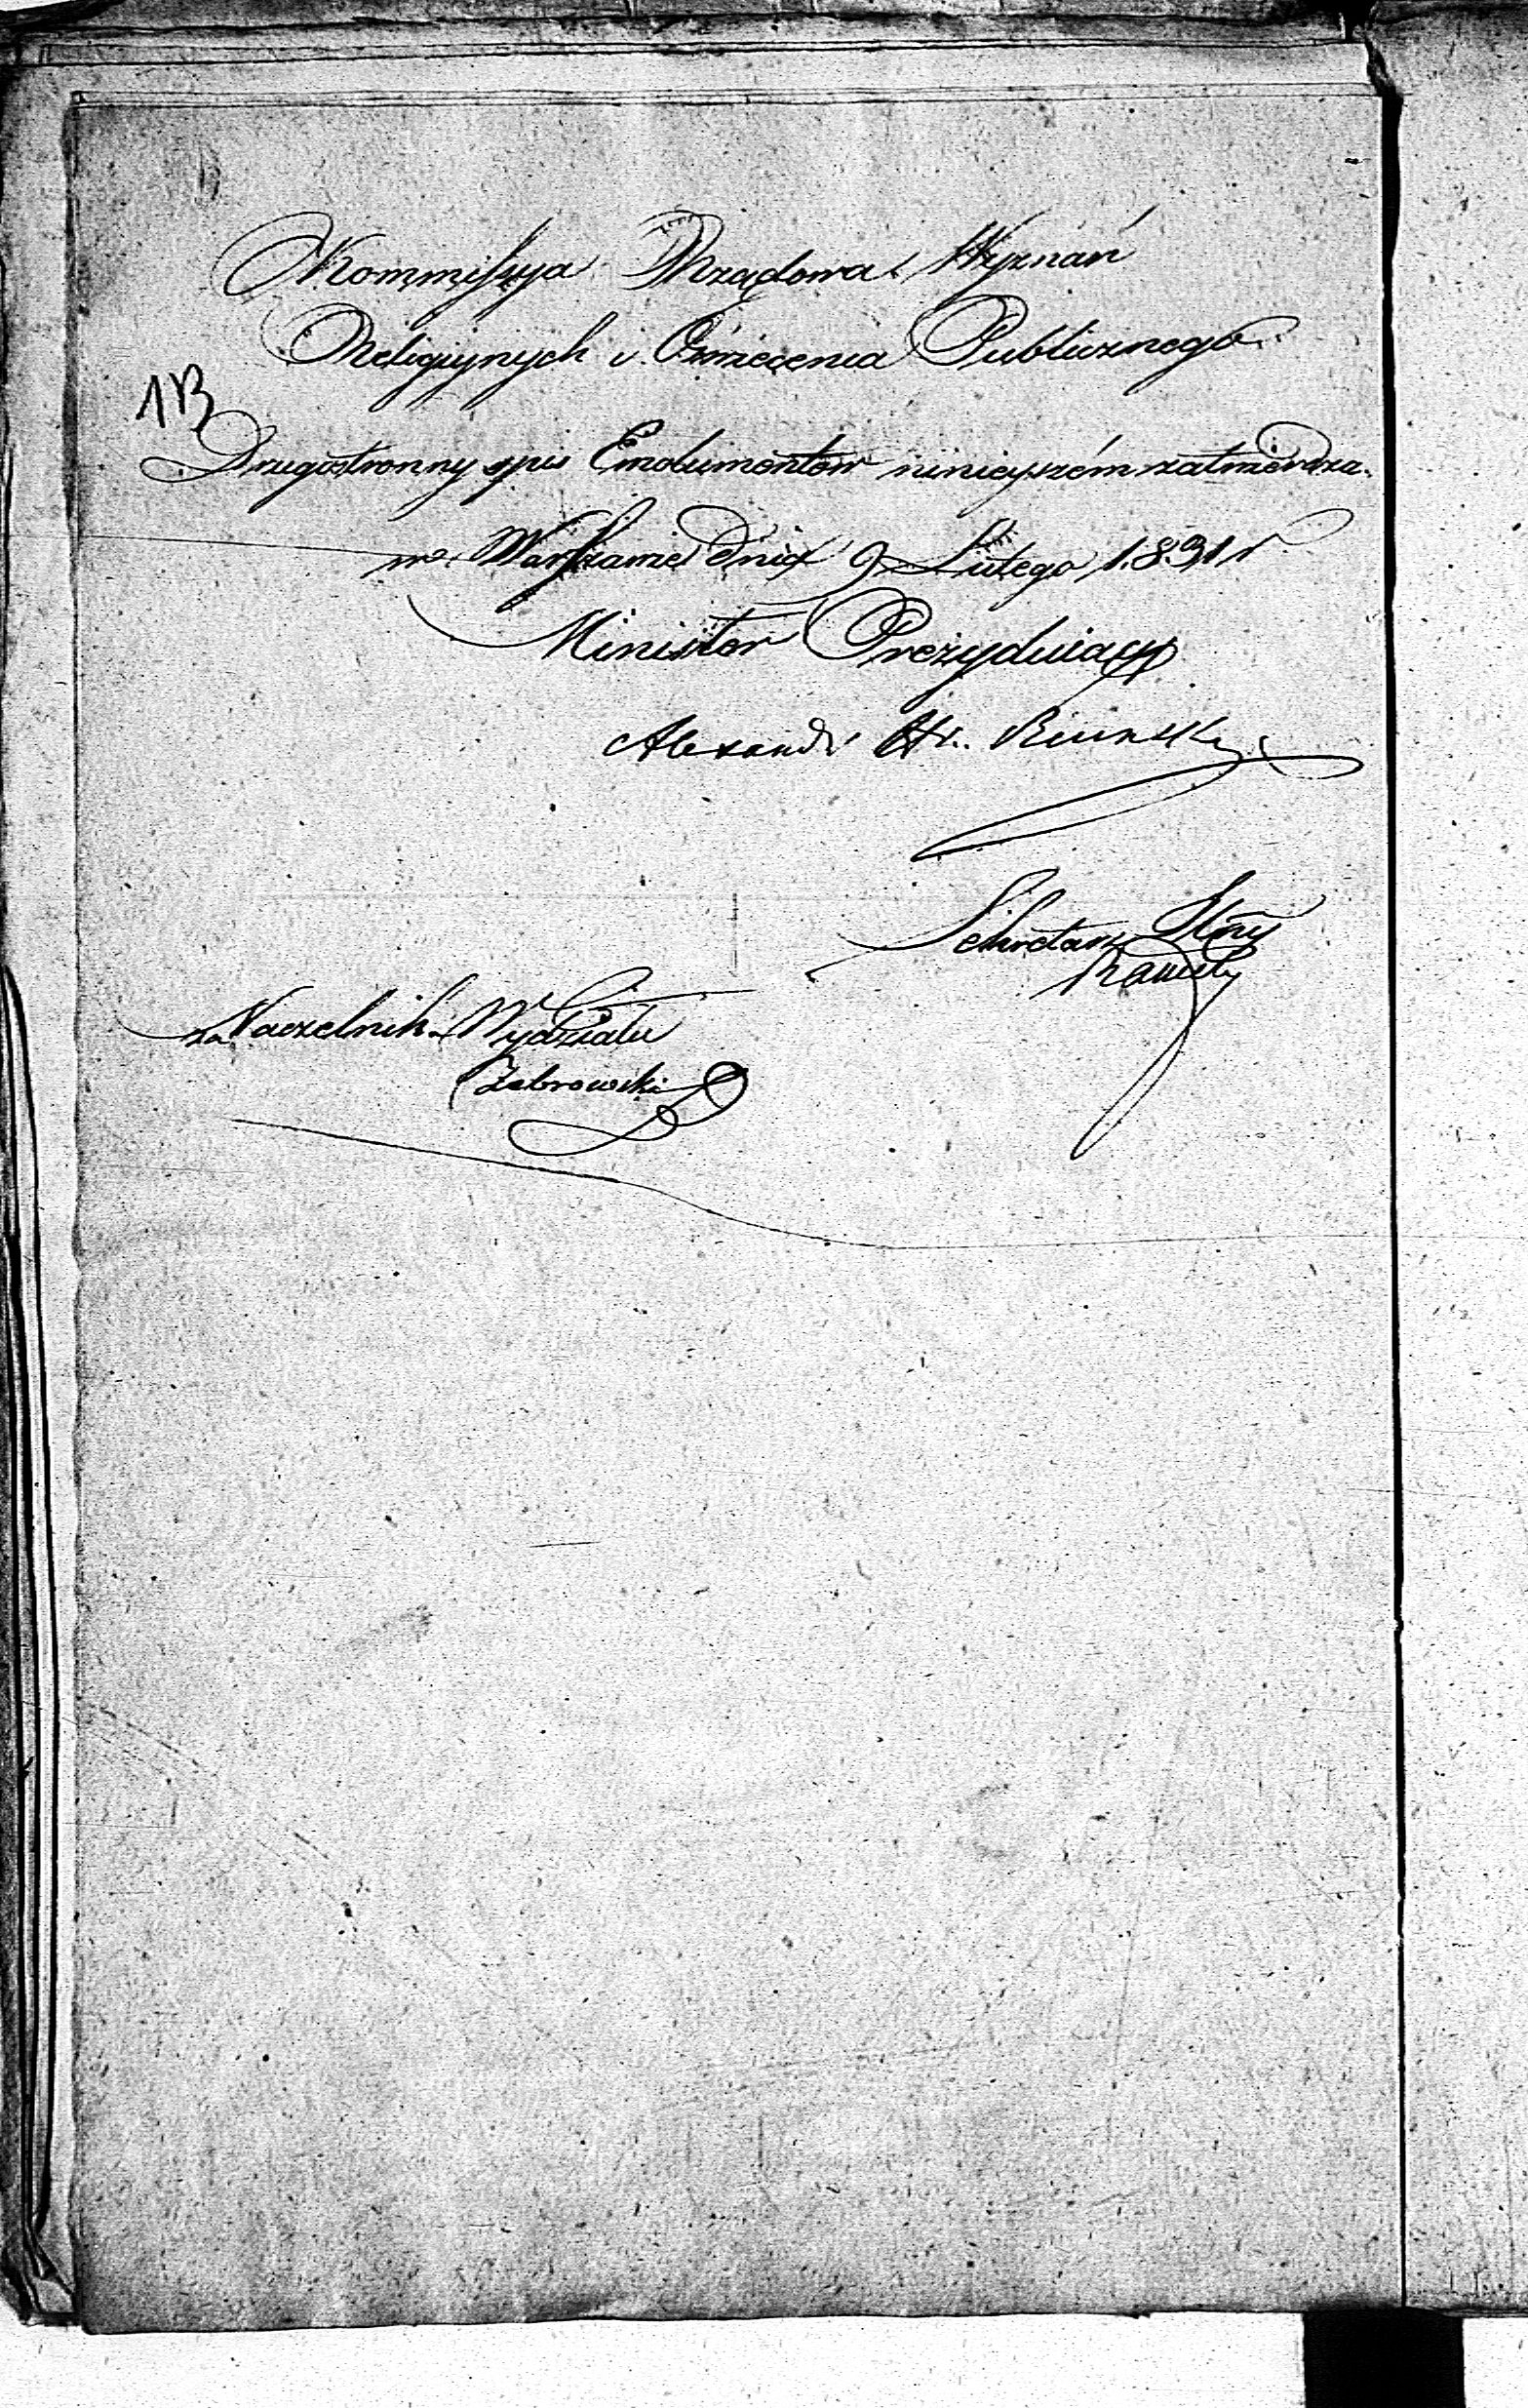 Kommissya Rządowa Wyznań
Religiynych i Oświecenia Publicznego
13
Drugostronny spis Emolumentow ninieyszém zatwierdza.
w Warszawie dnia 9 Lutego 1831 r
Minister Prezyduiący
Alexandr Hr.
Sekretarz Jlny
za Naczelnika Wydziału
Zebrowski